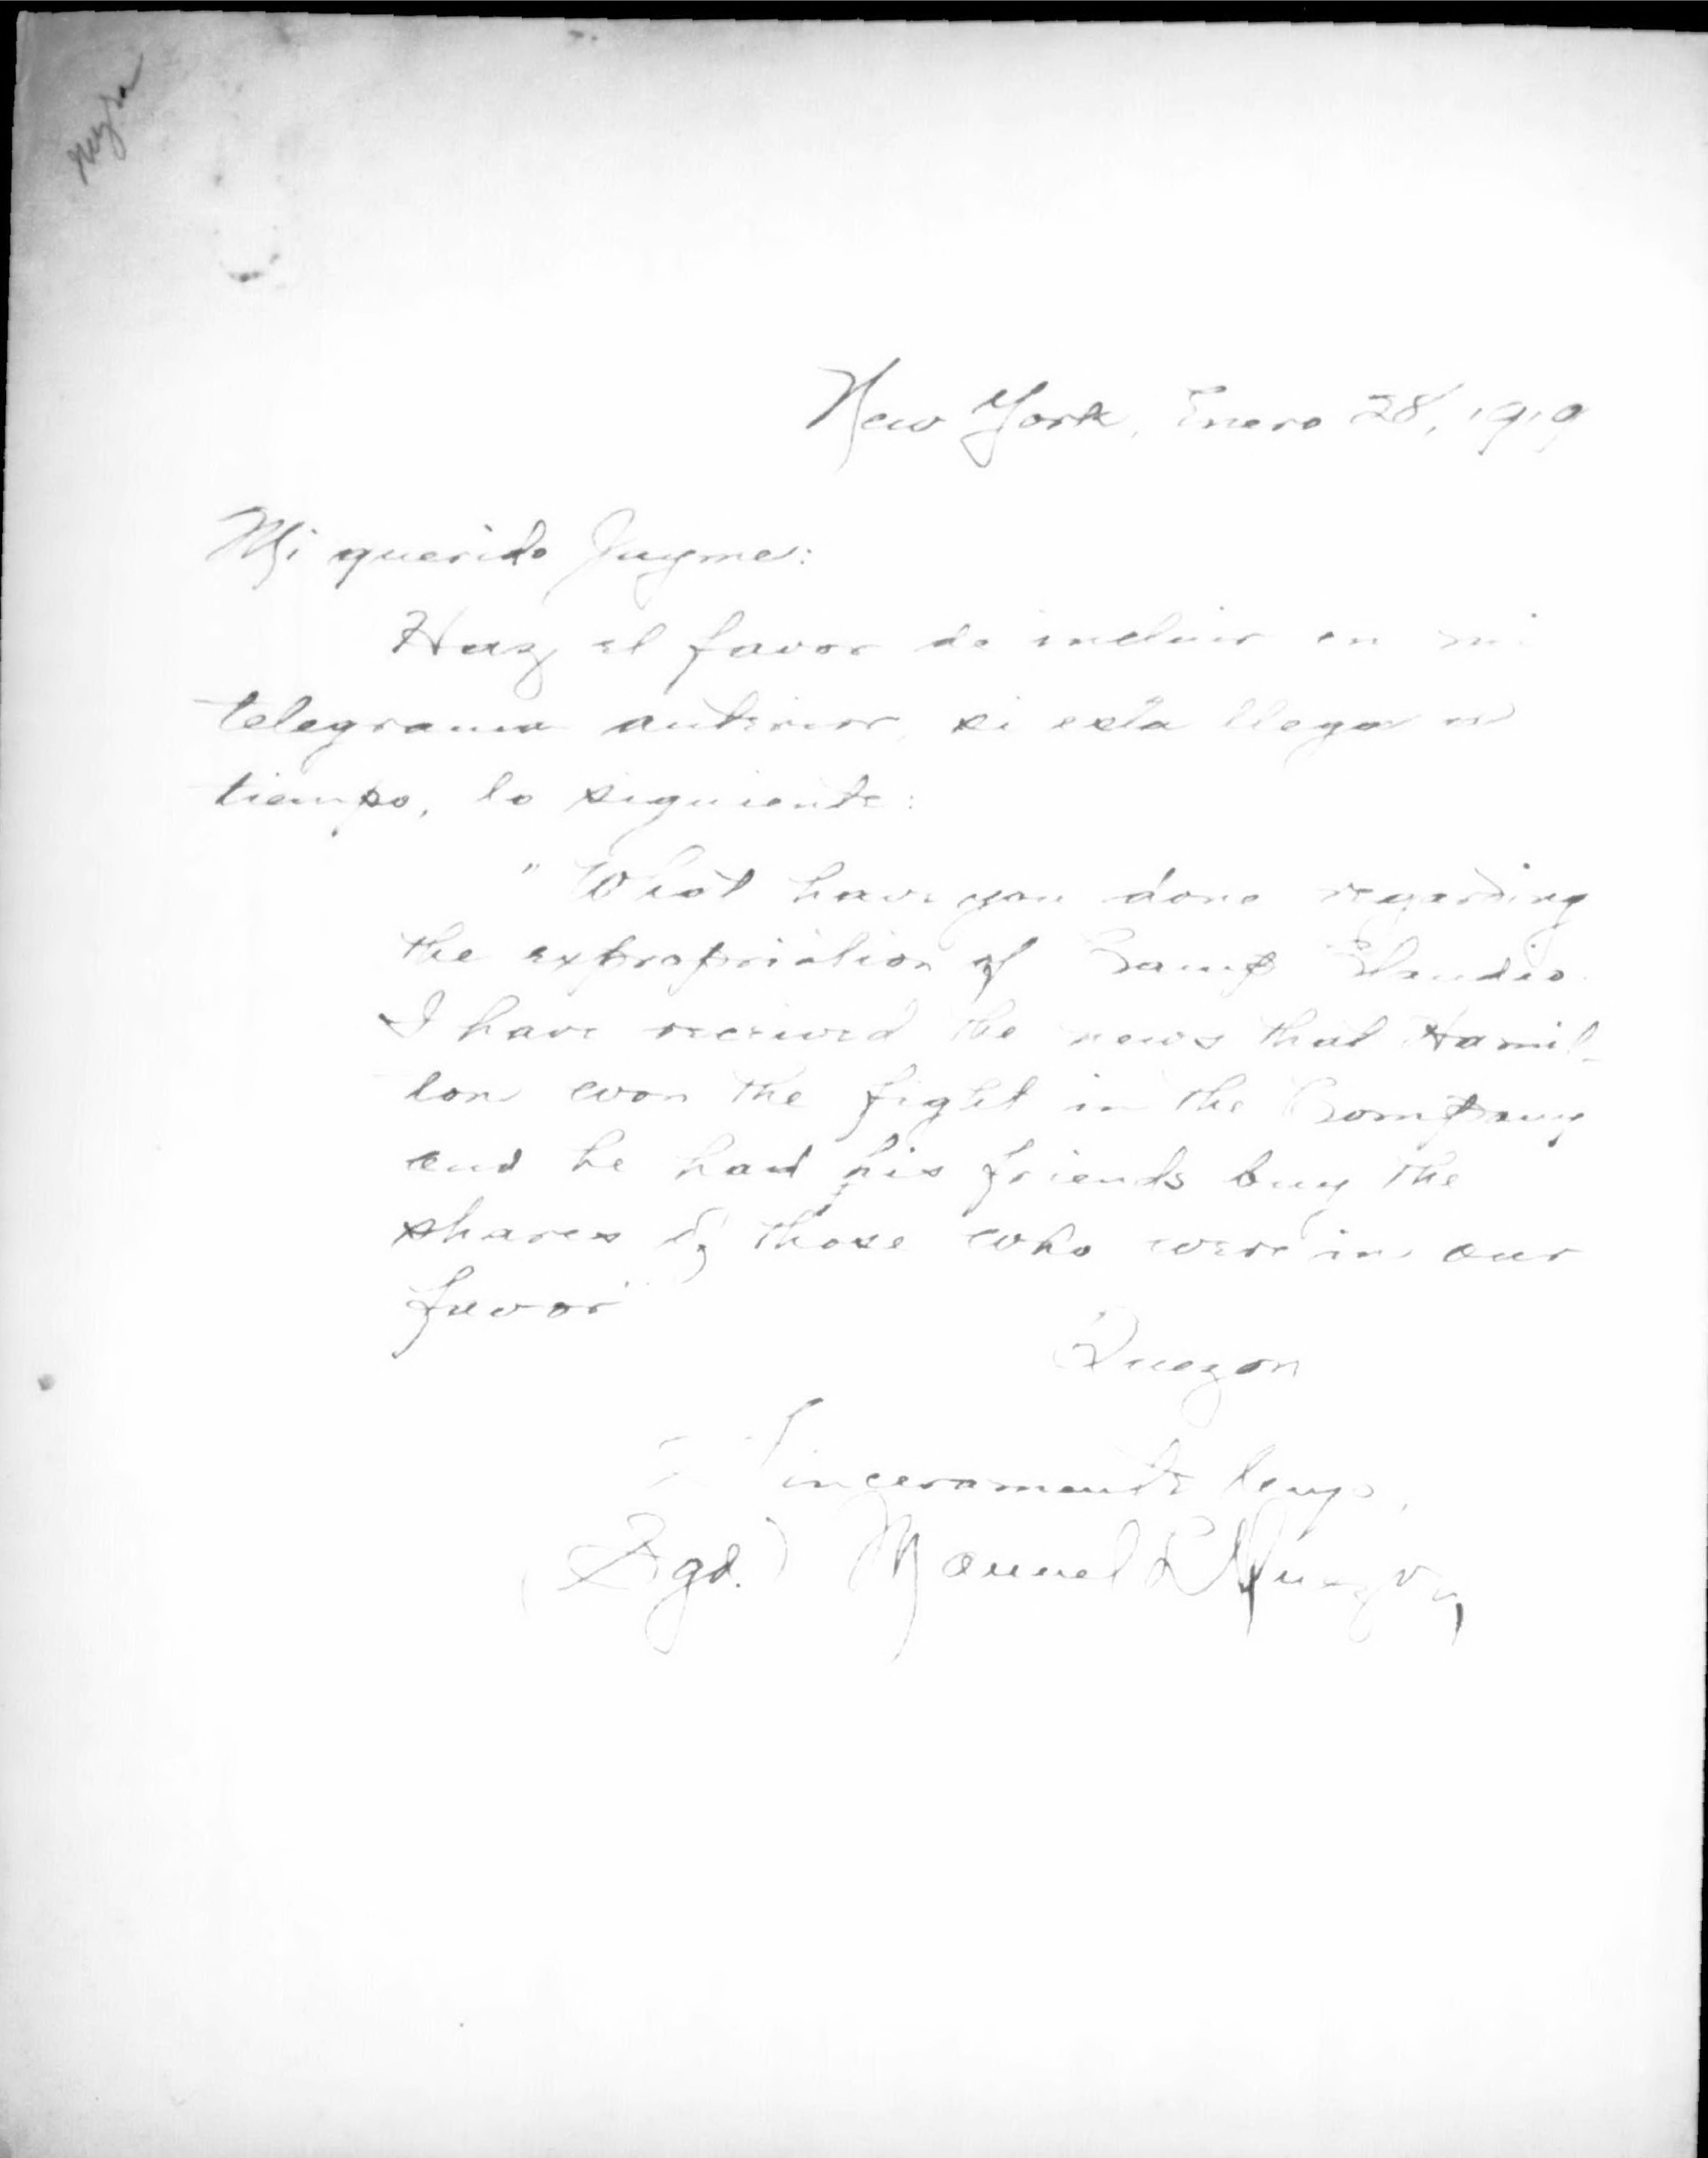 New York, Enero 28, 1919
Mi querido Jayme:
Haz el favor de incluir en mi
telegrama anterior, si esta llega a
tiempo, lo siguiente:
"What have you done regarding
the expropriation of Camp Claudio.
I have received the news that Hamil-
ton won the fight in the Company
and he had his friends buy the
shares of those who were in our
favor"
Quezon
Sinceramente tuyo,
(Sgd.) Manuel L Quezon